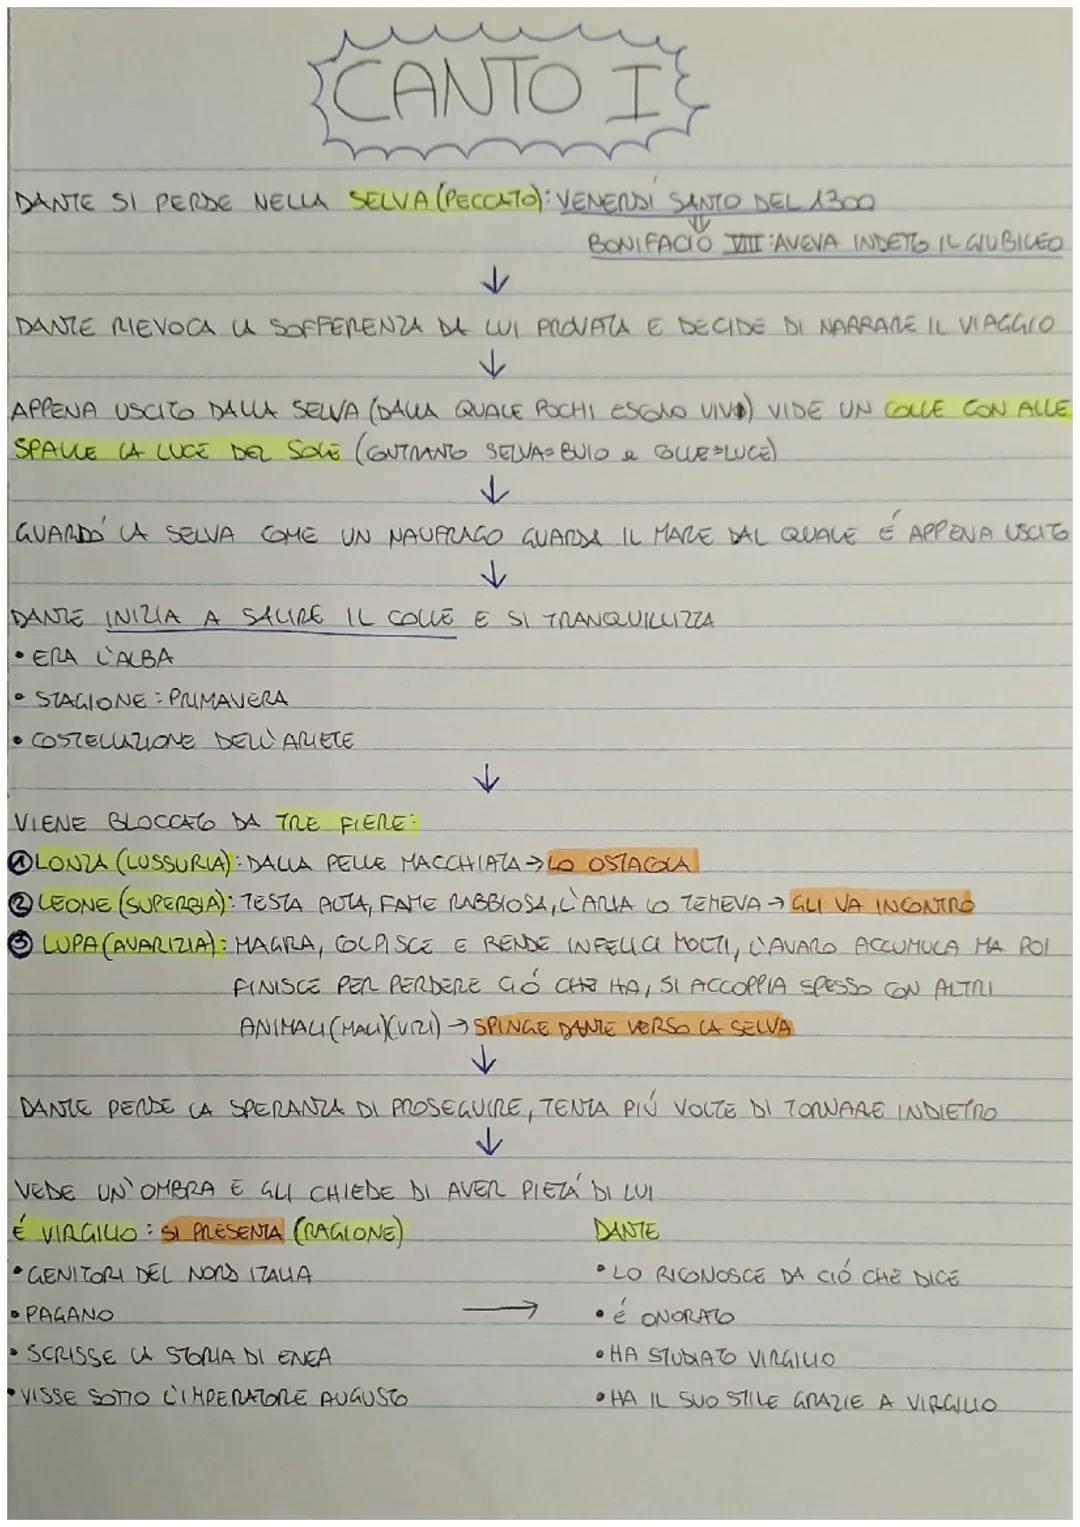 CANTO I
DANTE SI PERDE NELLA SELVA (PECCATO): VENERDÌ SANTO DEL 1300
BONIFACIO VIII: AVEVA INDETTO IL GIUBILEO
DANTE RIEVOCA LA SOFFERENZA DA LUI PROVATA E DECIDE DI NARRARE IL VIAGGIO
APPENA USCITO DALLA SELVA (DALLA QUALE POCHI ESCONO VIVI) VIDE UN COLLE CON ALLE
SPALLE LA LUCE DEL SOLE (CONTRASTO SELVA=BUIO e COLLE=LUCE)
GUARDÓ LA SELVA COME UN NAUFRAGO GUARDA IL MARE DAL QUALE É APPENA USCITO
DANTE INIZIA A SALIRE IL COLLE E SI TRANQUILLIZZA
• ERA L'ALBA
• STAGIONE: PRIMAVERA
• COSTELLAZIONE DELL'ARIETE
VIENE BLOCCATO DA TRE FIERE:
① LONZA (LUSSURIA): DALLA PELLE MACCHIATA → LO OSTACOLA
② LEONE (SUPERBIA): TESTA ALTA, FAME RABBIOSA, L'ARIA LO TEMEVA → GLI VA INCONTRO
③ LUPA (AVARIZIA): MAGRA, COLPISCE E RENDE INFELICI MOLTI, L'AVARO ACCUMULA MA POI
FINISCE PER PERDERE CIÓ CHE HA, SI ACCOPPIA SPESSO CON ALTRI
ANIMALI (MALI)(VIZI) → SPINGE DANTE VERSO LA SELVA
DANTE PERDE LA SPERANZA DI PROSEGUIRE, TENTA PIÚ VOLTE DI TORNARE INDIETRO
VEDE UN'OMBRA E GLI CHIEDE DI AVER PIETÁ DI LUI
É VIRGILIO: SI PRESENTA (RAGIONE)
• GENITORI DEL NORD ITALIA
• PAGANO
• SCRISSE LA STORIA DI ENEA
• VISSE SOTTO L'IMPERATORE AUGUSTO
DANTE
• LO RICONOSCE DA CIÓ CHE DICE
• É ONORATO
• HA STUDIATO VIRGILIO
• HA IL SUO STILE GRAZIE A VIRGILIO